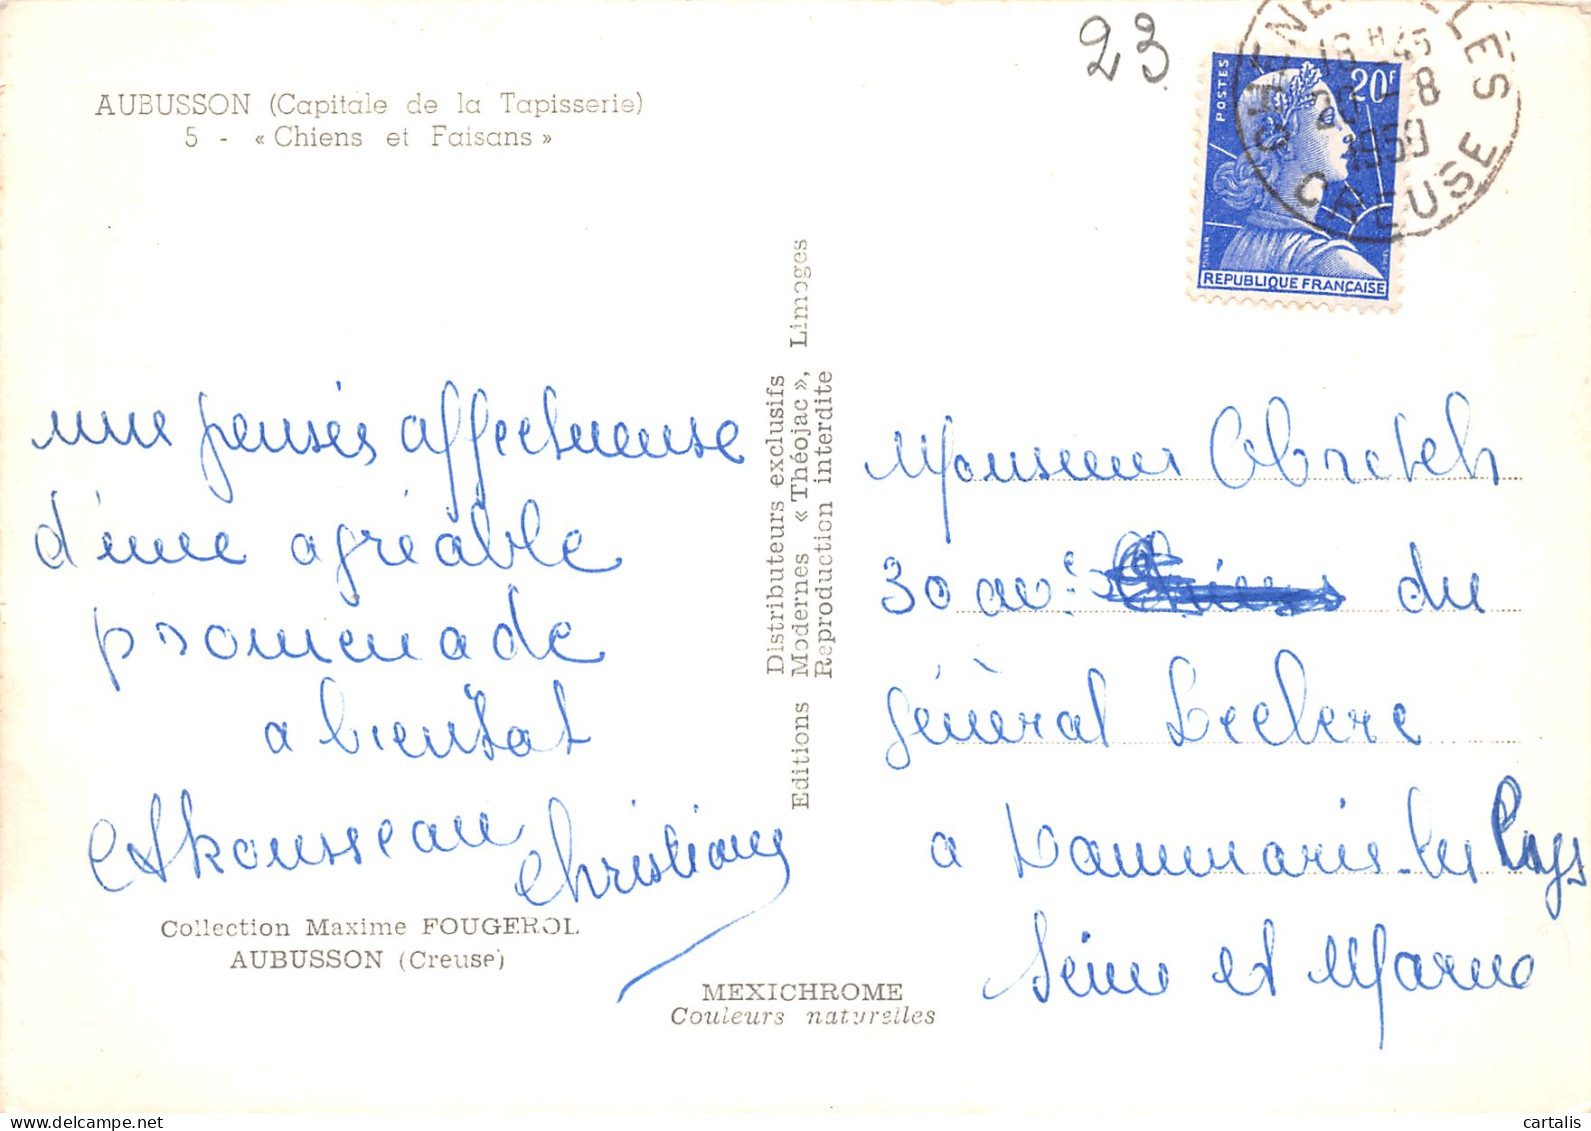 AUBUSSON (Capitale de la Tapisserie)
5 - « Chiens et Faisans »
23
POSTES
20F
REPUBLIQUE FRANÇAISE
MULLER
16 H 45
20 - 8
1959
CREUSE
une pensée affectueuse
d'une agréable
promenade
a bientot
Christiane
Collection Maxime FOUGEROL
AUBUSSON (Creuse)
Editions Modernes « Théojac », Limoges
Distributeurs exclusifs
Reproduction interdite
MEXICHROME
Couleurs naturelles
Monsieur
30 av. du
général Leclerc
a Dammarie-les Lys
Seine et Marne
cartalis